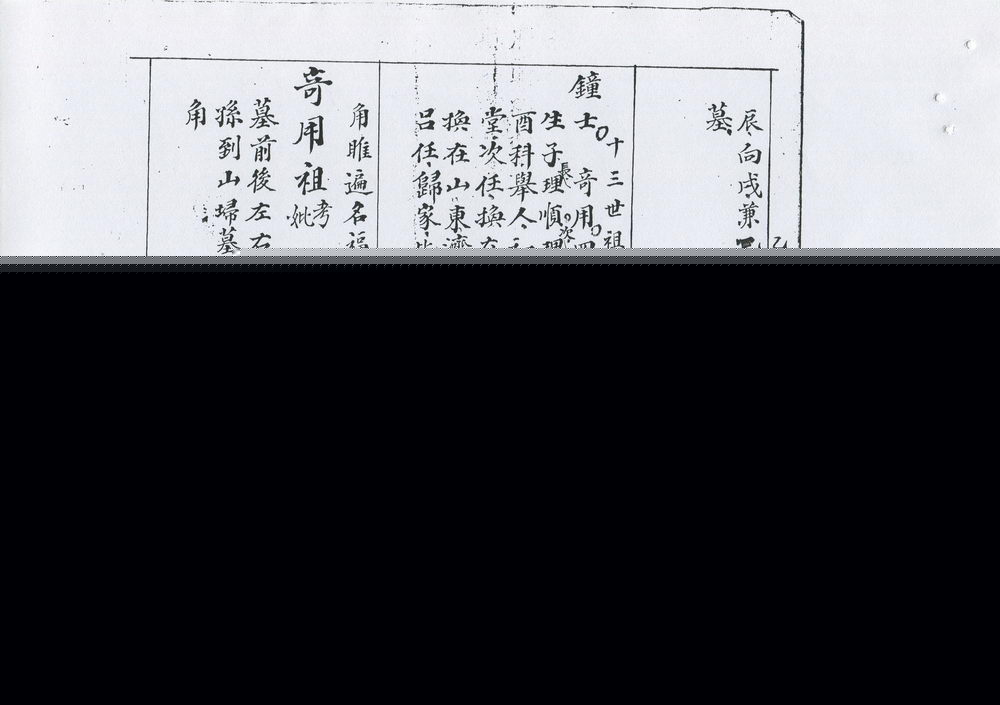 辰向戌兼
墓
十三世祖
鐘士 奇用
生子長理順次理
酉科舉人
堂次任換在
換在山東濟
呂任歸家
角睢遍名福
奇用祖考妣
墓前後左右
孫到山埽墓
角